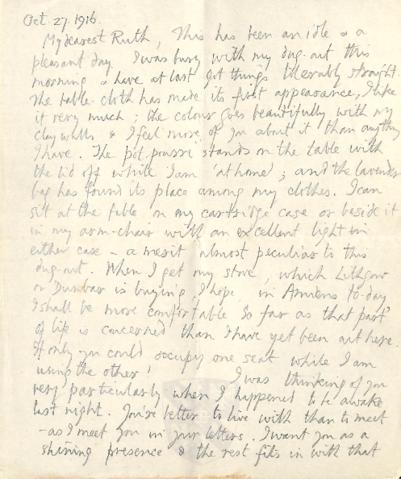 Oct. 27. 1916.
My dearest Ruth, This has been an idle & a
pleasant day. I was busy with my dug-out this
morning & have at last got things tolerably straight.
The table-cloth has made its first appearance, I like
it very much; the colour goes beautifully with my
clay walls & I feel more of you about it than anything
I have. The pot pourri stands on the table with
the lid off while I am 'at home'; and the lavender
bag has found its place among my clothes. I can
sit at the table on my cartridge case or beside it
in my arm-chair with an excellent light in
either case - a merit almost peculiar to this
dug-out. When I get my stove, which Lithgow
or Dunbar is buying, I hope, in Amiens to-day
I shall be more comfortable so far as that part
of life is concerned than I have yet been out here.
If only you could occupy one seat while I am
using the other! I was thinking of you
very particularly when I happened to lie awake
last night. You're better to live with than to meet
- as I meet you in your letters. I want you as a
shining presence & the rest fits in with that